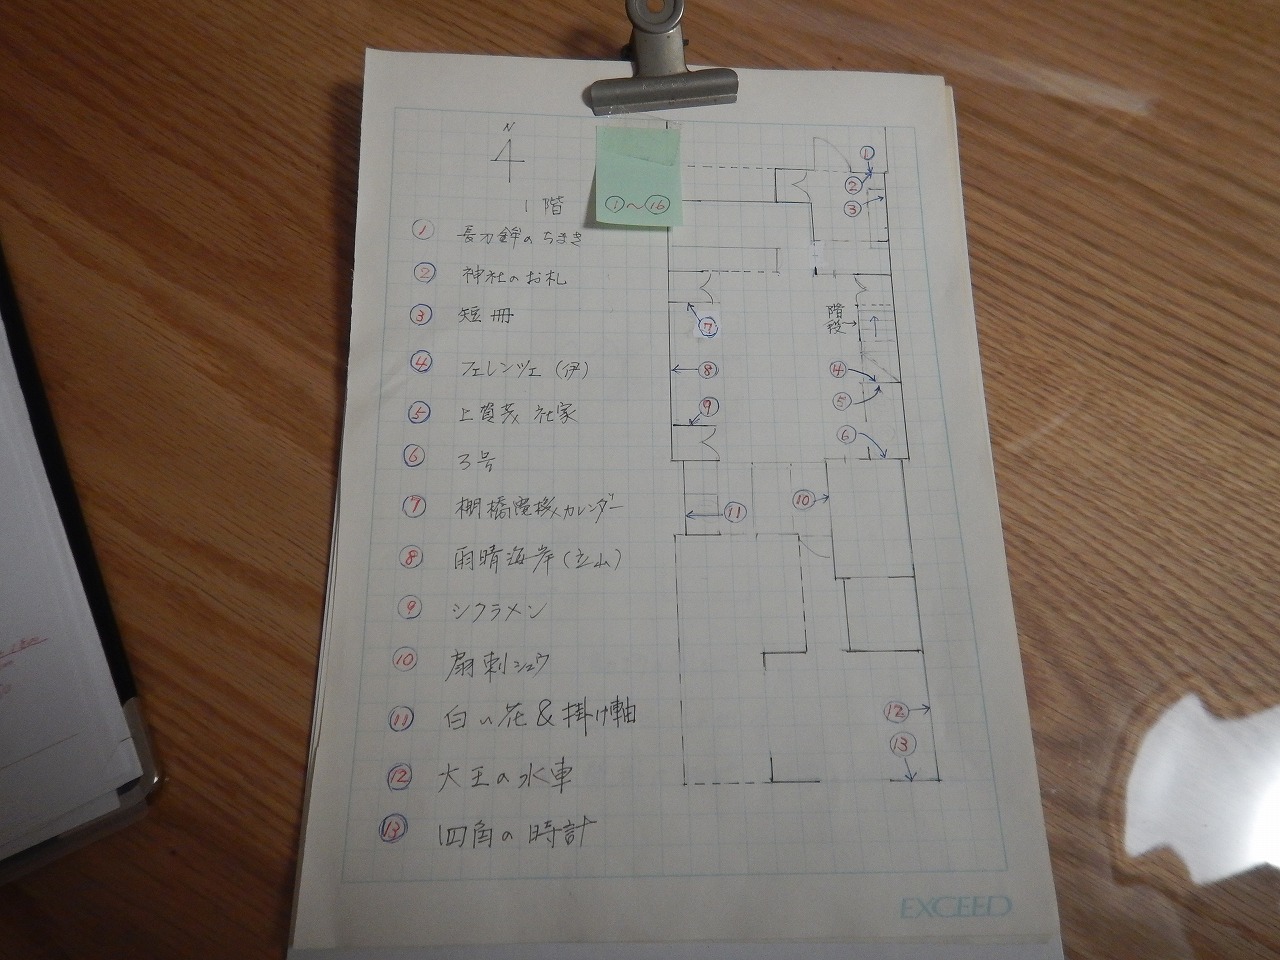 N
1階
①~⑯
① 長刀鉾のちまき
② 神社のお札
③ 短冊
④ フェレンツェ(伊)
⑤ 上賀茂 社家
⑥ 3号
⑦ 棚橋電機カレンダー
⑧ 雨晴海岸(立山)
⑨ シクラメン
⑩ 扇刺シュウ
⑪ 白い花&掛け軸
⑫ 大王の水車
⑬ 四角の時計
①
②
③
階段
⑦
⑧
④
⑤
⑨
⑥
⑩
⑪
⑫
⑬
EXCEED